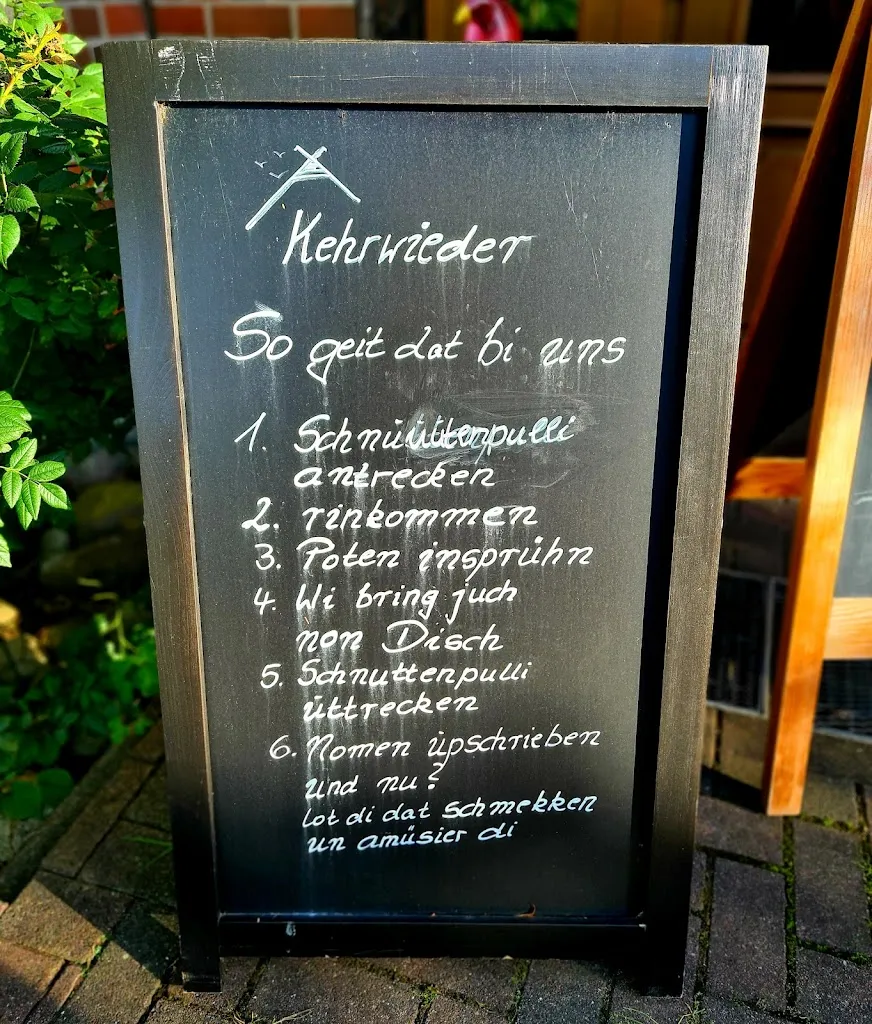 Kehrwieder
So geit dat bi uns
1. Schnüüttenpulli
antrecken
2. rinkommen
3. Poten insprühn
4. Wi bring juch
non Disch
5. Schnuttenpulli
üttrecken
6. Nomen üpschrieben
und nu?
lot di dat schmekken
un amüsier di